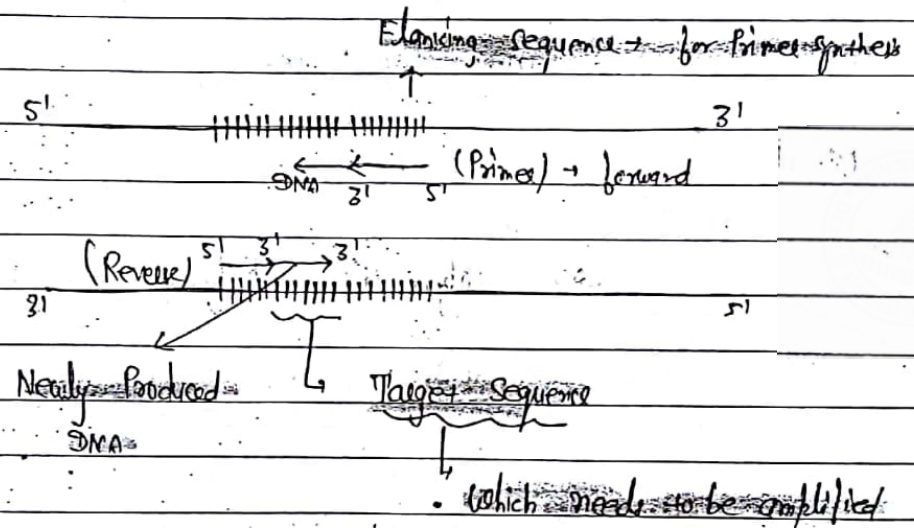 Flanking sequence → for Primer synthesis
5' 3'
(Primer) → forward
DNA 3' 5'
(Reverse) 5' 3' 3'
3' 5'
Newly Produced Target Sequence
DNA
• Which needs to be amplified